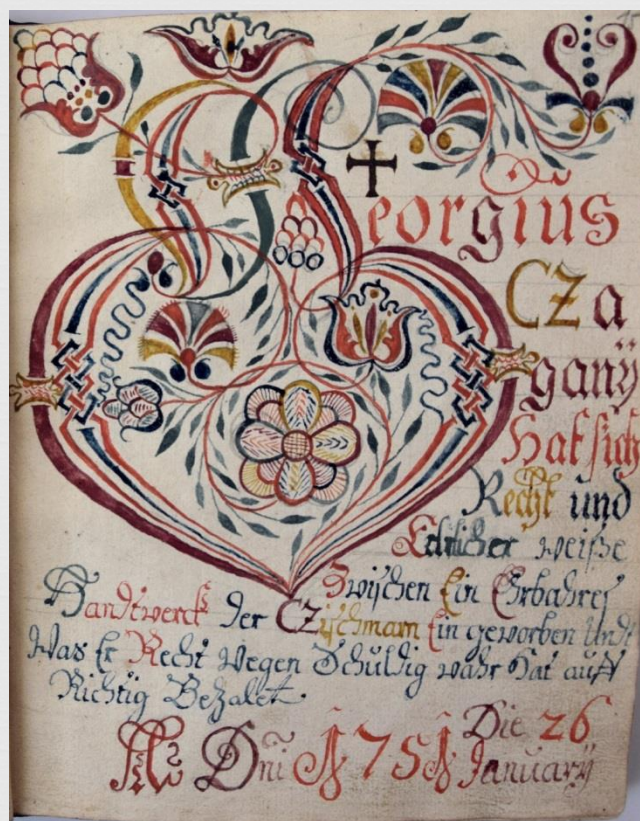 Georgius
CZa
ganÿ
Hat sich
Recht und
Ehrlicher weisse
Zwischen Ein Ehrbahres
Handtwerck der CZischmam Ein geworben Undt
Was Er Recht Wegen Schuldig wahr Hat auff
Richtig Bezalet
Ao Dni 1751 Die 26
Januarÿ